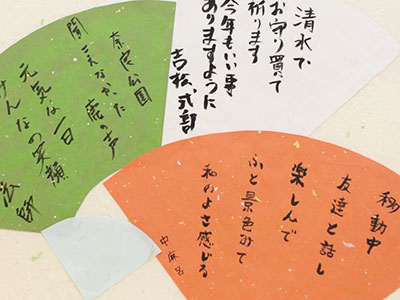 清水で
お守り買って
祈ります
今年もいい事
ありますように
吉松式部
奈良公園
聞こえなかった
鹿の声
元気な一日
みんなの笑顔
移動中
友達と話し
楽しんで
ふと景色みて
和のよさ感じる
中麻呂